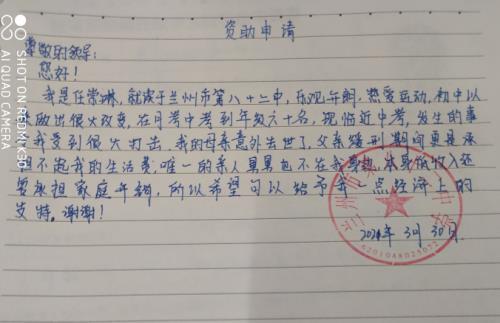 资助申请
尊敬的领导:
您好!
我是任常琳,就读于兰州市第八十二中,乐观开朗,热爱运动,初中以
来做出很大改变,在月考中考到年级六十名,现临近中考,发生的事
令我受到很大打击,我的母亲意外去世了,父亲服刑期间更是承
担不起我的生活费,唯一的亲人舅舅也不在我身边,本身低收入还
要承担家庭开销,所以希望可以给予我一点经济上的
支持,谢谢!
2021年3月30日
6201048025072
SHOT ON REDMI
AI QUAD CAMERA